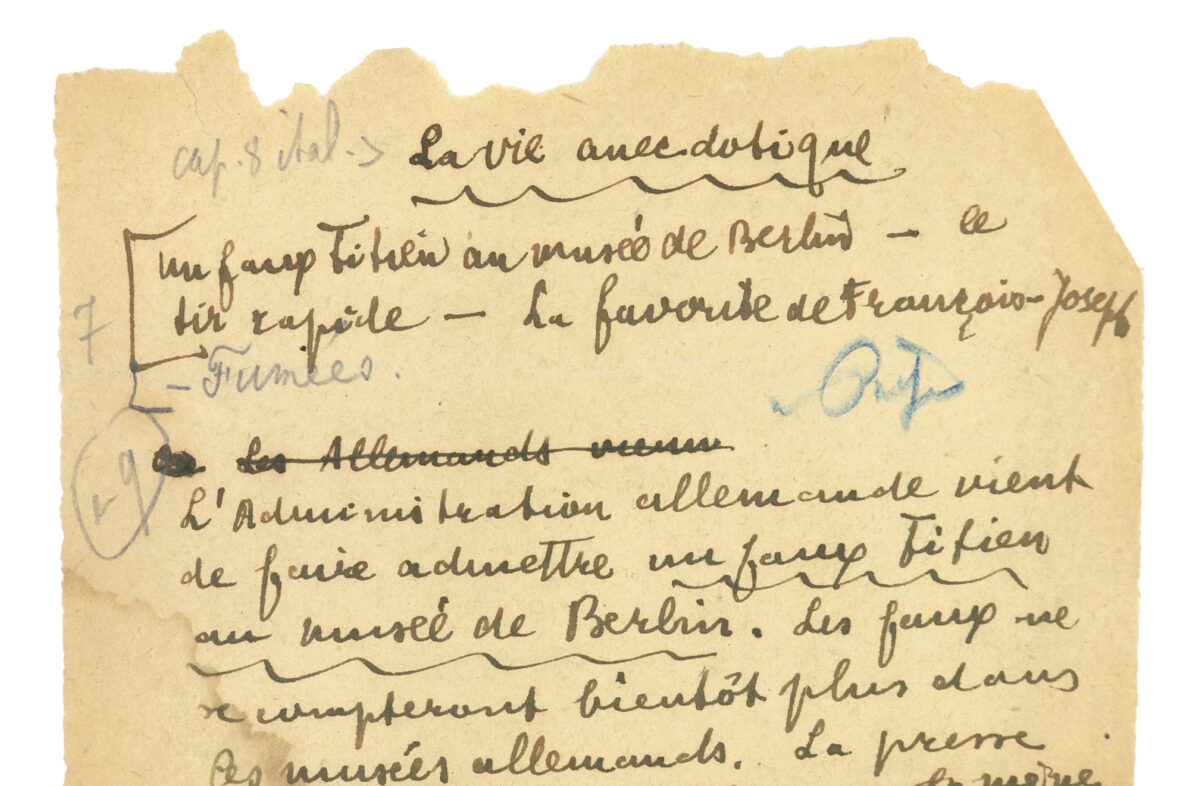 cap. 8 ital. -> La vie anecdotique
Un faux Titien au musée de Berlin — Le
tir rapide — La favorite de François-Joseph
— Fumées.
7
9
Les Allemands vienn
L'Administration allemande vient
de faire admettre un faux Titien
au musée de Berlin. Les faux ne
se compteront bientôt plus dans
les musées allemands. La presse
même